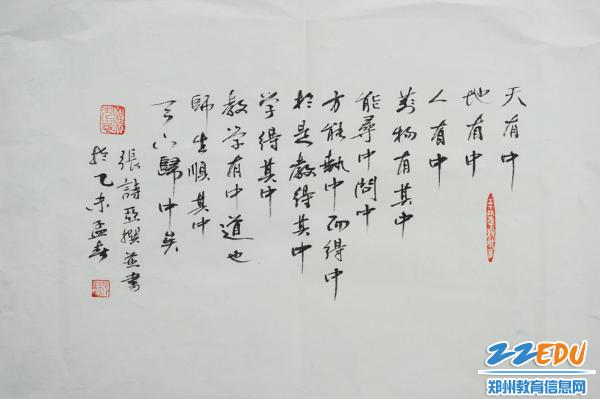 天有中
地有中
人有中
萬物有其中
能尋中問中
方能執中而得中
於是教得其中
学得其中
教学有中道也
師生順其中
天下歸中矣
張詩亞撰並書
於乙未孟春
22EDU
郑州教育信息网